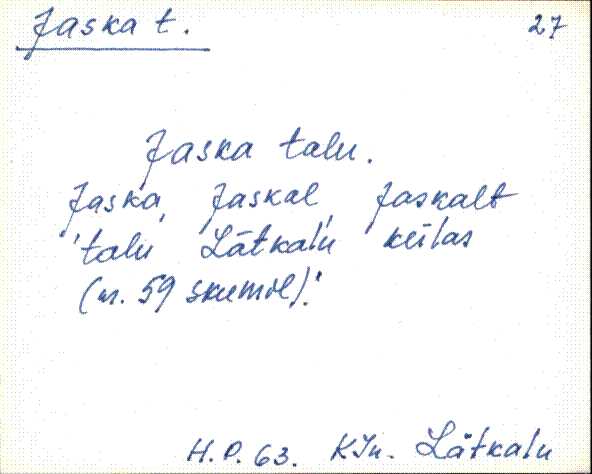 Jaska t. 27
Jaska talu.
Jaska, Jaskal, Jaskalt
'talu Lätkalu külas
(nr. 59 skeemil).'
H.P. 63. KJn. Lätkalu